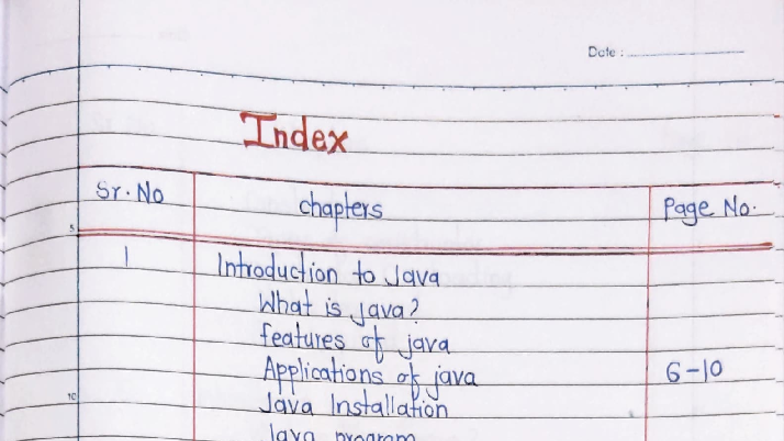 Date :
Index
Sr. No chapters Page No.
5
1 Introduction to Java
What is java?
features of java
Applications of java 6-10
10
Java Installation
Java program